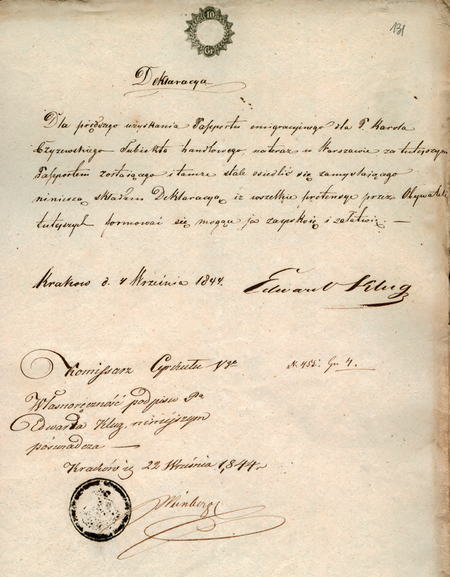 10
Gr
131
Deklaracya
Dla prędszego uzyskania Passportu emigracyjnego dla P. Karola
Czyżewskiego Subiekta handlowego, na teraz w Warszawie za tutejszym
Passportem zostającego i tamże stale osiedlić się zamyślającego
niniejszą składam Deklaracyą, iż wszelkie pretensye przez Obywateli
tutejszych formować się mogące ja zaspokoię i załatwię. —
Krakow d. 4 Września 1844.
Edward Klug
Komissarz Cyrkułu
N. 455. Gm 4.
Własnoręczność podpisu Pa
Edwarda Klug niniejszym
poświadcza —
Kraków 22 Września 1844 r.